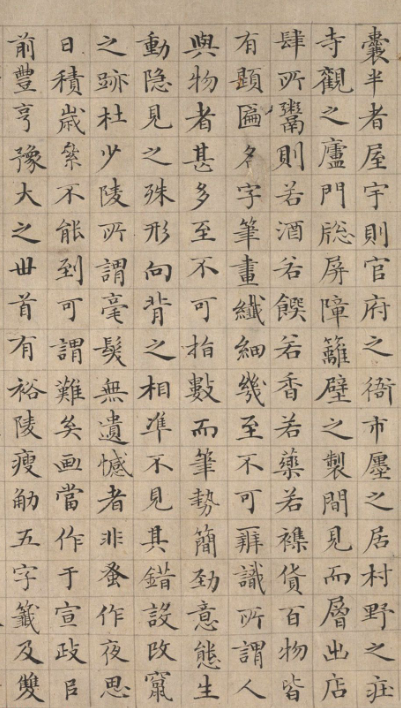 囊半者屋宇則官府之衙市廛之居村野之庄
寺觀之廬門牕屏障籬壁之製間見而層出店
肆所鬻則若酒若饌若香若藥若雜貨百物皆
有題匾名字筆畫纖細幾至不可辨識所謂人
與物者甚多至不可指數而筆勢簡勁意態生
動隐見之殊形向背之相準不見其錯設改竄
之跡杜少陵所謂毫髮無遺憾者非蚤作夜思
日積歲絫不能到可謂難矣画當作于宣政㠯
前豐亨豫大之世首有裕陵瘦筋五字籤及雙